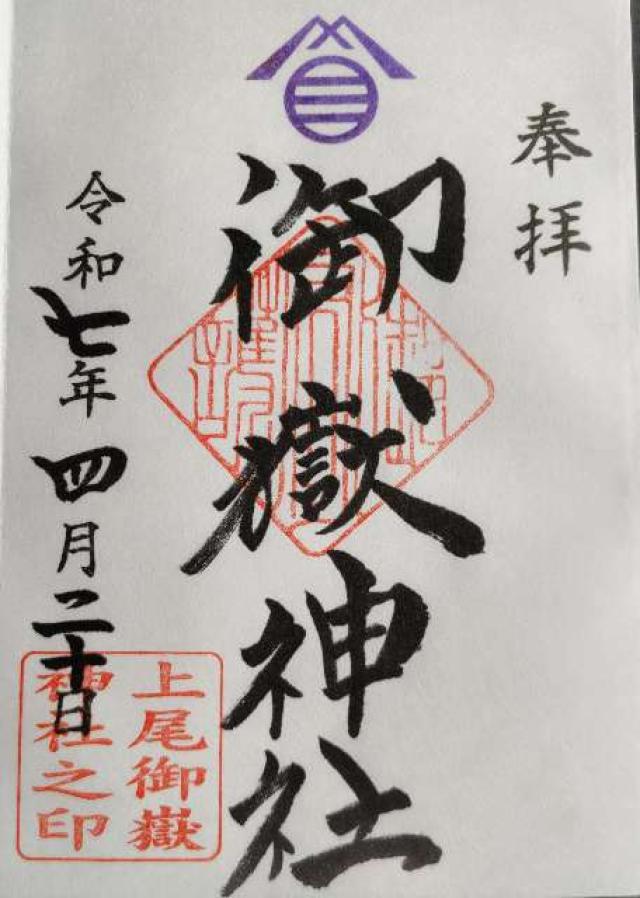 奉拝
御嶽神社
令和七年四月二十日
上尾御嶽
神社之印